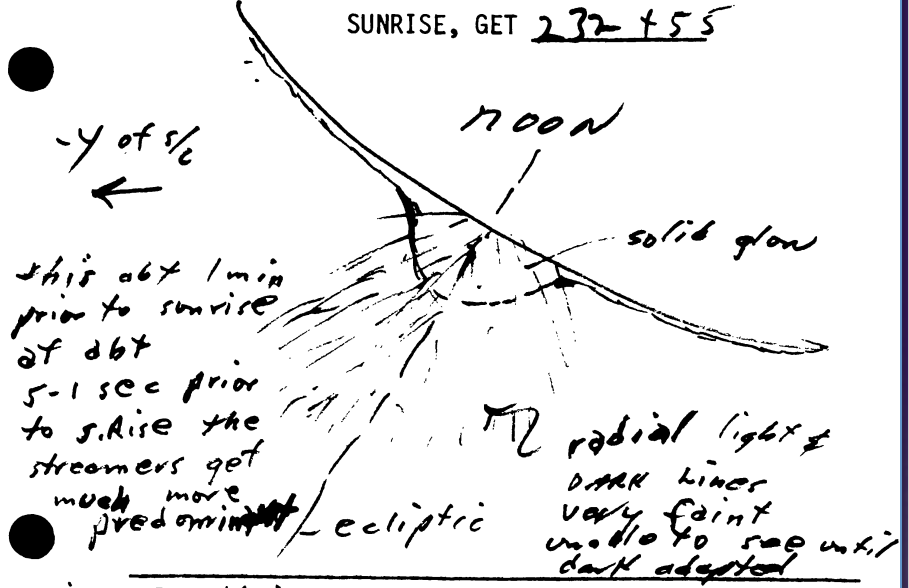 SUNRISE, GET 232 + 55
MOON
-Y of s/c
solid glow
this abt 1 min
prior to sunrise
at abt
5-1 sec prior
to s.Rise the
streamers get
much more
predominant
ecliptic
radial light &
DARK Lines
very faint
unable to see until
dark adapted